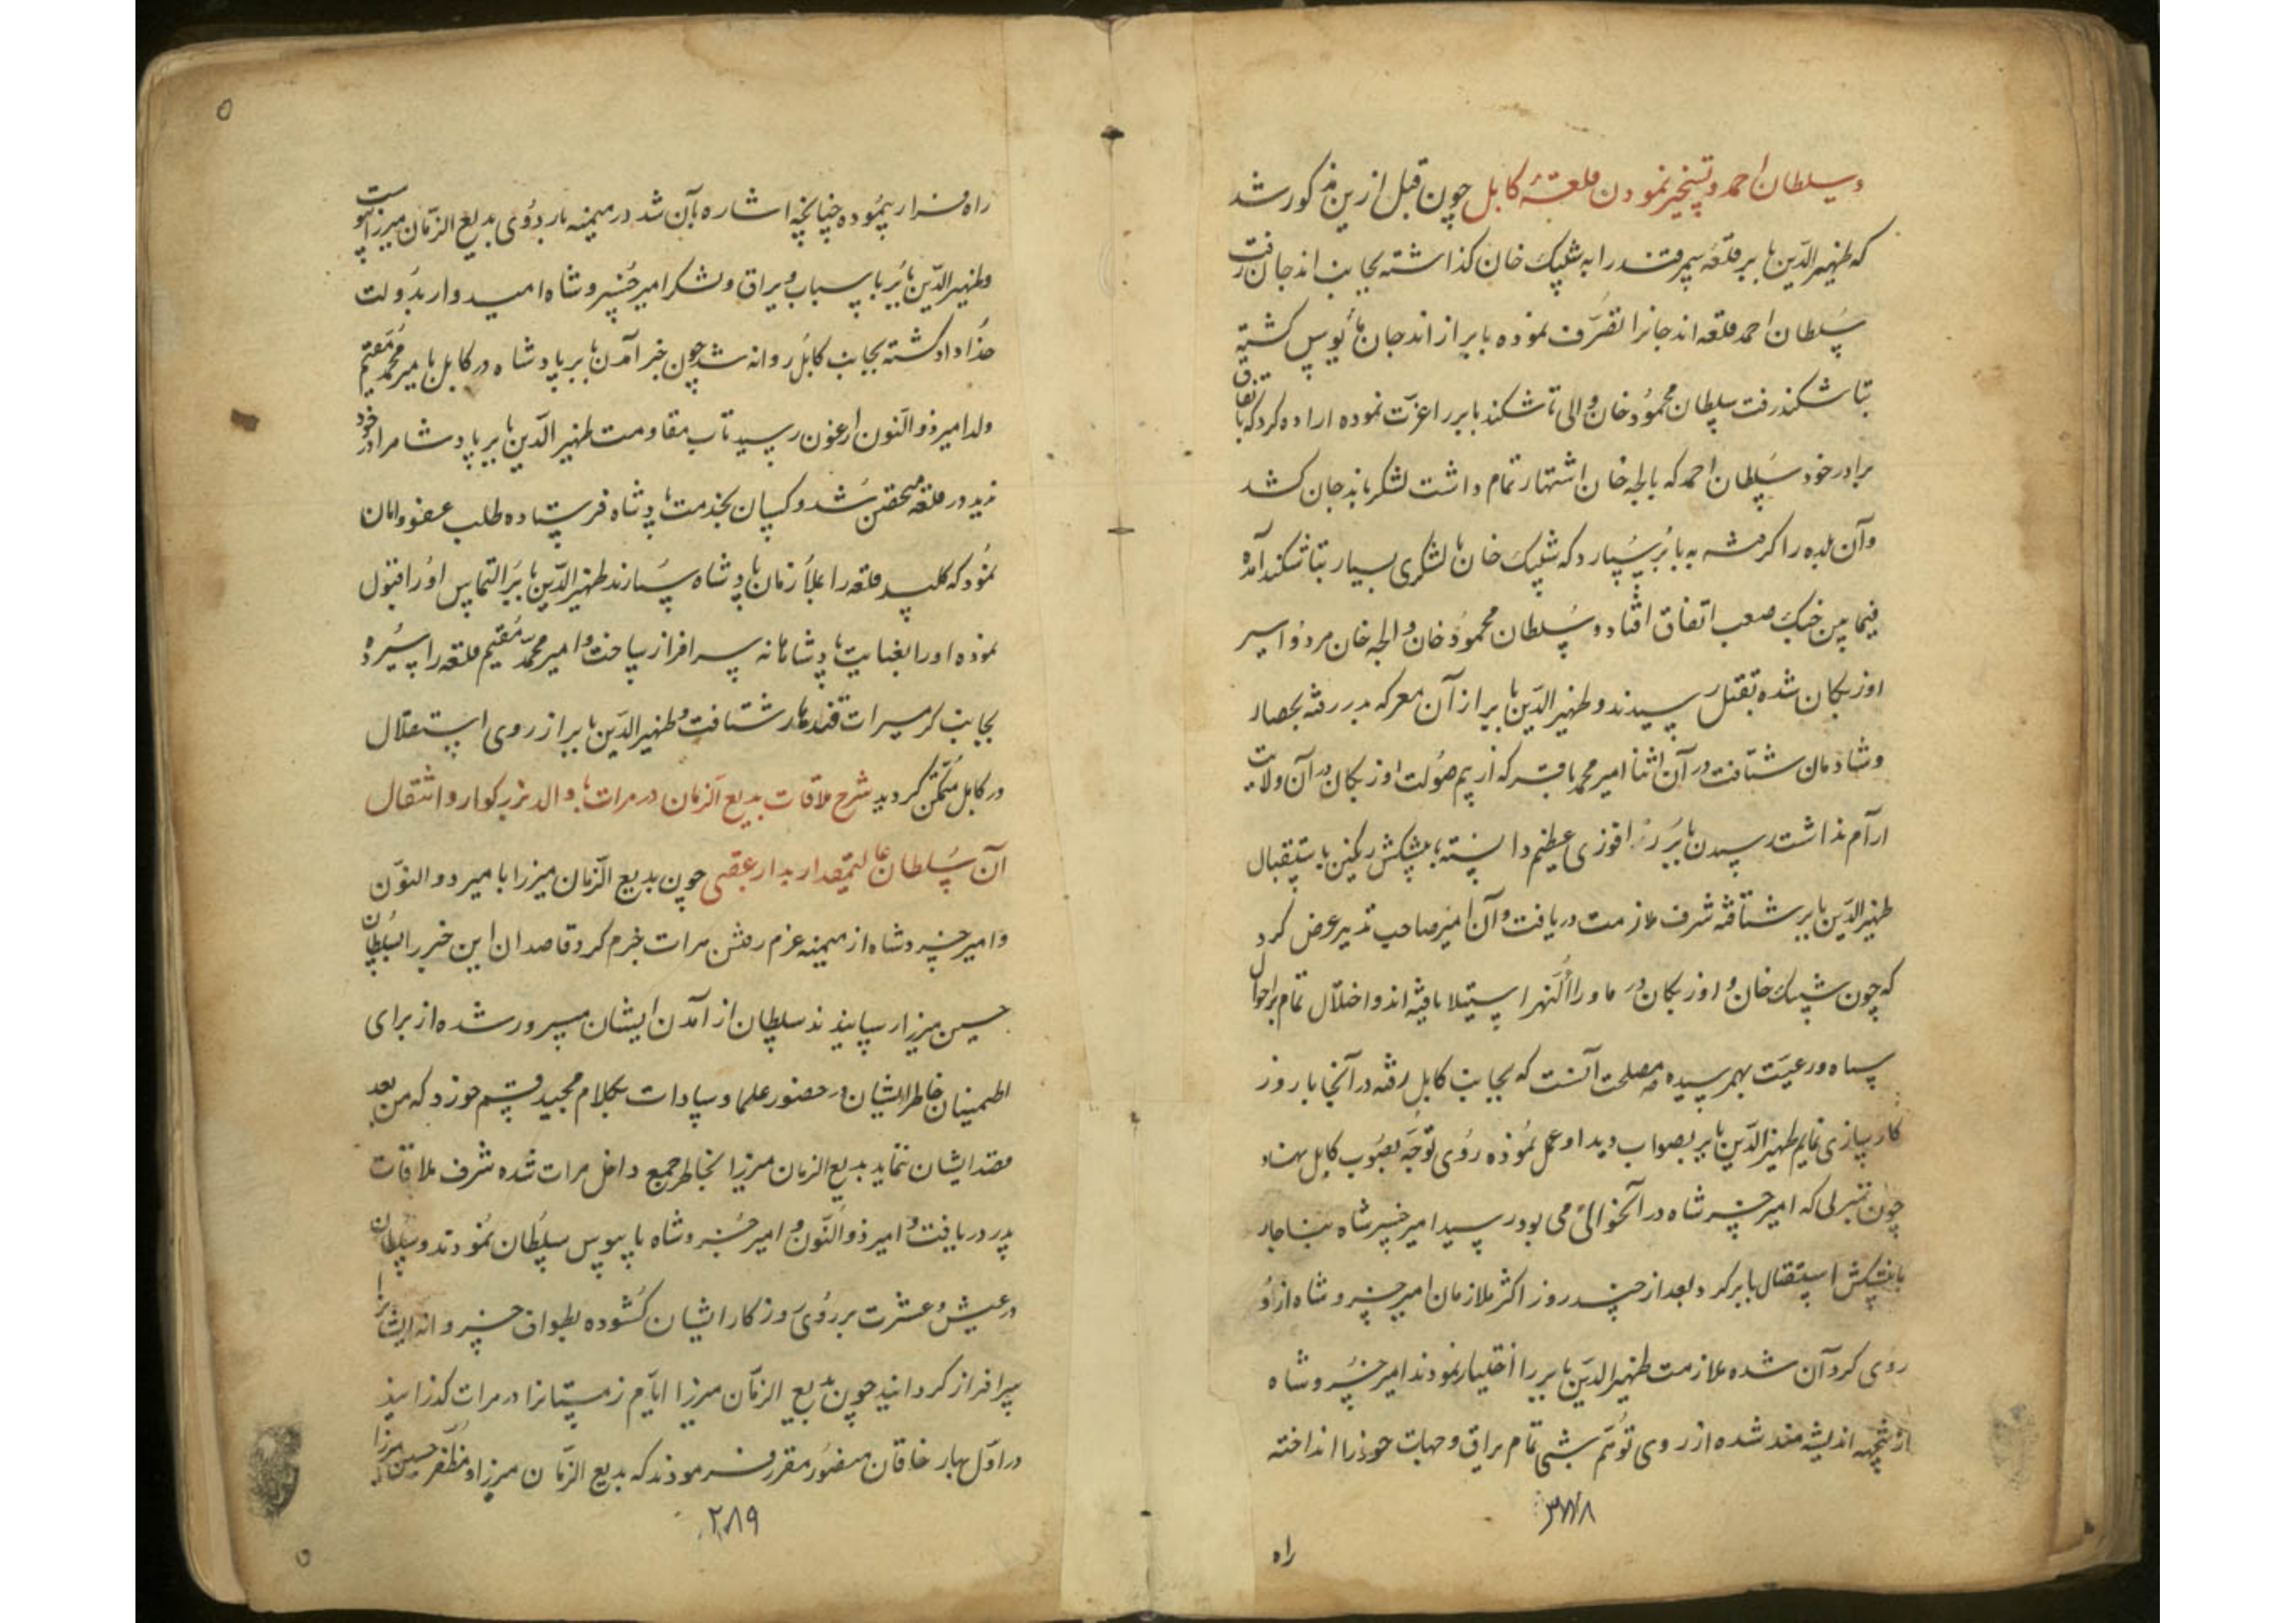 وسلطان احمد و تسخیر نمودن قلعهٔ کابل چون قبل ازین مذکور شد
که ظهیرالدین بابر قلعه سمرقند را به شیبک خان کذاشته بجانب اندجان رفت
سلطان احمد قلعه اندجانرا تصرف نموده بابر از اندجان مأیوس کشته
بتاشکند رفت سلطان محمود خان والی تاشکند بابر را عزت نموده اراده کرد که باتفاق
برادر خود سلطان احمد که بالجه خان اشتهار تمام داشت لشکر باندجان کشد
وآن بلده را کرفته به بابر سپارد که شیبک خان با لشکری بسیار بتاشکند آمده
فیما بین جنک صعب اتفاق افتاد و سلطان محمود خان و الجه خان مردو اسیر
اوزبکان شده بقتل رسیدند و ظهیرالدین بابر از آن معرکه بدر رفته بحصار
وشادمان شتافت در آن اثنا امیر محمد باقر که از بیم صولت اوزبکان در آن ولایت
آرام نداشت رسیدن بابر را فوزی عظیم دانسته با پیشکش رنکین باستقبال
ظهیرالدین بابر شتافته شرف ملازمت دریافت و آن امیر صاحب تدبیر عرض کرد
که چون شیبک خان و اوزبکان در ماوراالنهر استیلا یافته اند و اختلال تمام بر احوال
سپاه و رعیت بهم رسیده مصلحت آنست که بجانب کابل رفته در آنجا با روز
کار سازی نمایم ظهیرالدین بابر بصواب دید او عمل نموده روی توجه بصوب کابل نهاد
چون بمنزلی که امیر خسرو شاه در آنحوالی می بود رسید امیر خسرو شاه بناچار
با پیشکش استقبال بابر کرد و بعد از چند روز اکثر ملازمان امیر خسرو شاه ازو
روی کردان شده ملازمت ظهیرالدین بابر را اختیار نمودند امیر خسرو شاه
ازینجهه اندیشه مند شده از روی توهم شبی تمام یراق و جهات خود را انداخته
۲۸۸
راه
راه فرار پیموده چنانچه اشاره بآن شد در میمنه باردوی بدیع الزمان میرزا پیوست
وظهیرالدین بابر با سباب و یراق و لشکر امیر خسرو شاه امیدوار بدولت
خداداد کشته بجانب کابل روانه شد چون خبر آمدن بابر پادشاه در کابل بامیر محمد مقیم
ولد امیر ذوالنون ارغون رسید تاب مقاومت ظهیرالدین بابر پادشاه در خود
ندید در قلعه متحصن شد و کسان بخدمت پادشاه فرستاده طلب عفو و امان
نمود که کلید قلعه را بملازمان پادشاه سپارند ظهیرالدین بابر التماس او را قبول
نموده او را بعنایت پادشاهانه سرافراز ساخت و امیر محمد مقیم قلعه را سپرده
بجانب کرمسیرات قندهار شتافت و ظهیرالدین بابر از روی استقلال
در کابل متمکن کردید شرح ملاقات بدیع الزمان در هرات با والد بزرکوار و انتقال
آن سلطان عالیمقدار بدار عقبی چون بدیع الزمان میرزا با میر ذوالنون
وامیر خسرو شاه از میمنه عزم رفتن هرات جزم کرد قاصدان این خبر را بسلطان
حسین میرزا رسانیدند سلطان از آمدن ایشان مسرور شده از برای
اطمینان خاطر ایشان در حضور علما و سادات بکلام مجید قسم خورد که من بعد
قصد ایشان ننماید بدیع الزمان میرزا بخاطر جمع داخل هرات شده شرف ملاقات
پدر دریافت و امیر ذوالنون و امیر خسرو شاه پابوس سلطان نمودند و سلطان
در عیش و عشرت بر روی روزکار ایشان کشوده بطواف خسروانه ایشانرا
سرافراز کردانید چون بدیع الزمان میرزا ایام زمستانرا در هرات کذرانید
در اول بهار خاقان منصور مقرر فرمودند که بدیع الزمان میرزا و مظفر حسین میرزا
۲۸۹